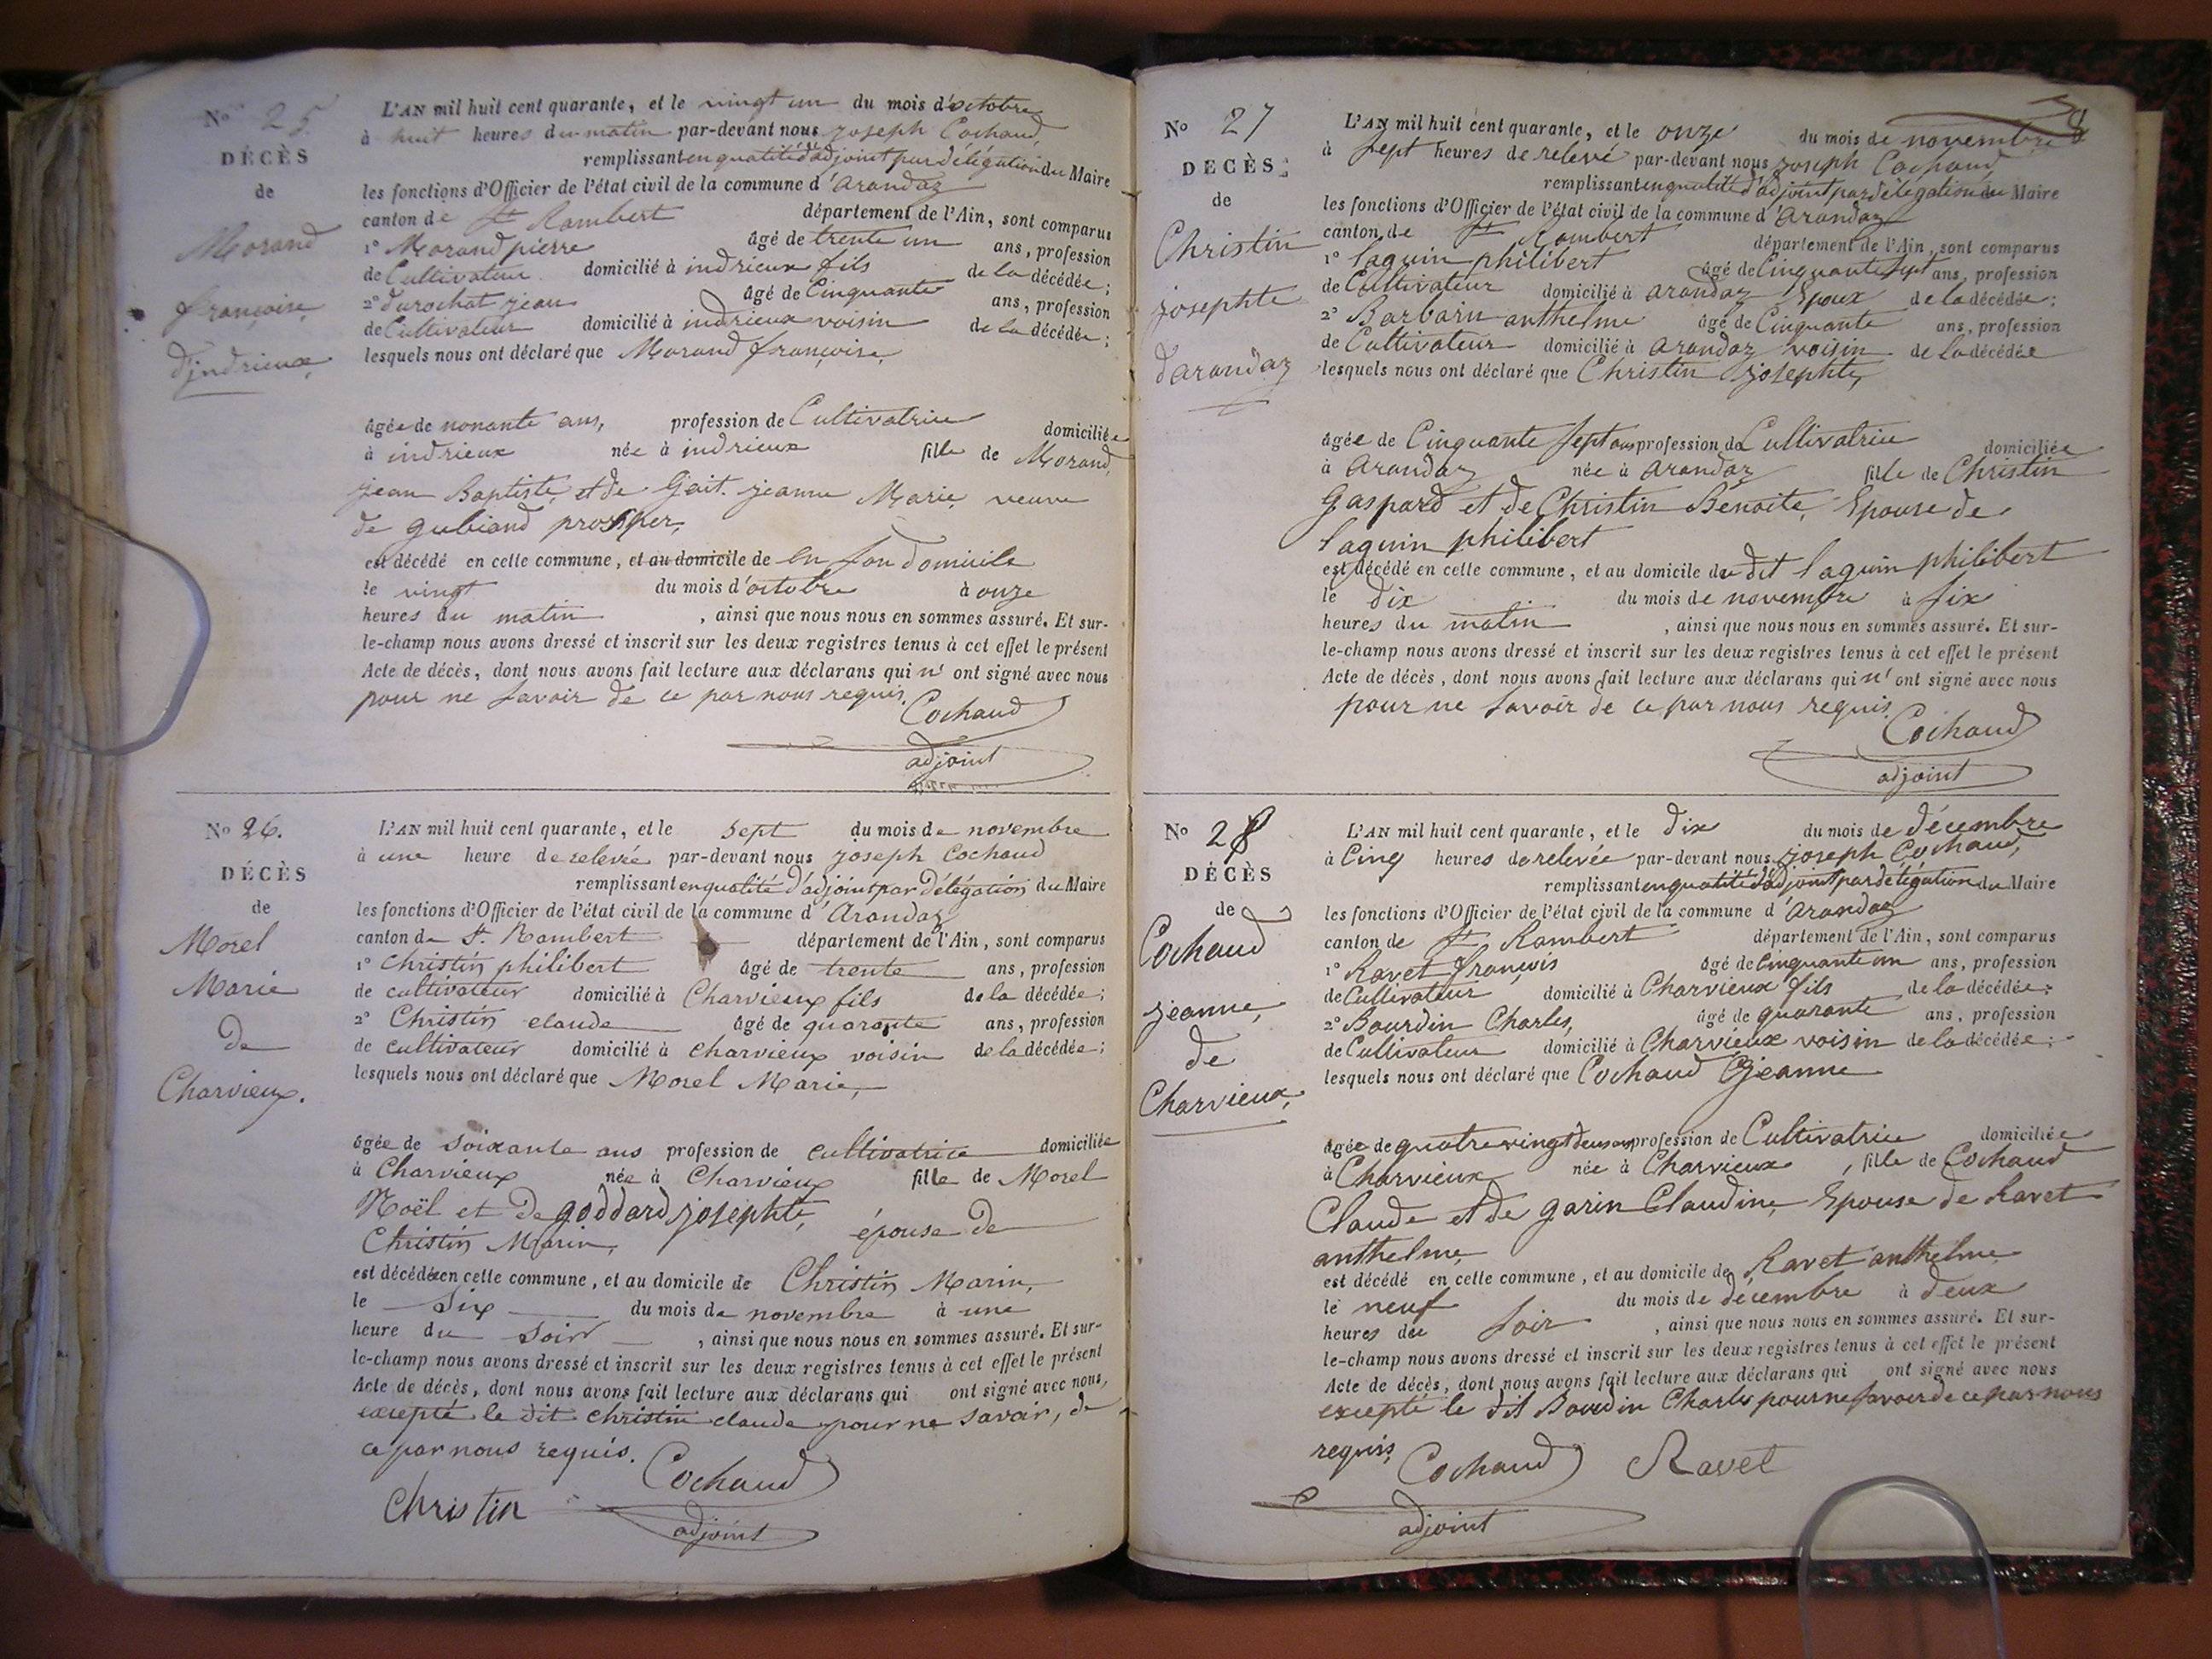 No 25.
DÉCÈS
de
Morand
françoise
d'indrieux
L'AN mil huit cent quarante, et le vingt un du mois d'octobre
à huit heures du matin par-devant nous joseph Cochaud
remplissant en qualité d'adjoint par délégation du Maire
les fonctions d'Officier de l'état civil de la commune d'arandaz
canton de St Rambert département de l'Ain, sont comparus
1° Morand pierre âgé de trente un ans, profession
de Cultivateur domicilié à indrieux fils de la décédée;
2° durochat jean âgé de Cinquante ans, profession
de Cultivateur domicilié à indrieux voisin de la décédée;
lesquels nous ont déclaré que Morand françoise,
âgée de nonante ans, profession de Cultivatrice domiciliée
à indrieux née à indrieux fille de Morand
jean Baptiste et de Gait jeanne Marie, veuve
de gubiand prosper,
est décédé en cette commune, et au domicile de en son domicile
le vingt du mois d'octobre à onze
heures du matin, ainsi que nous nous en sommes assuré. Et sur-
le-champ nous avons dressé et inscrit sur les deux registres tenus à cet effet le présent
Acte de décès, dont nous avons fait lecture aux déclarans qui n'ont signé avec nous
pour ne savoir de ce par nous requis.
Cochaud
adjoint
No 26.
DÉCÈS
de
Morel
Marie
de
Charvieux.
L'AN mil huit cent quarante, et le sept du mois de novembre
à une heure de relevée par-devant nous joseph Cochaud
remplissant en qualité d'adjoint par délégation du Maire
les fonctions d'Officier de l'état civil de la commune d'Arandaz
canton de St. Rambert département de l'Ain, sont comparus
1° Christin philibert âgé de trente ans, profession
de cultivateur domicilié à Charvieux fils de la décédée;
2° Christin claude âgé de quarante ans, profession
de cultivateur domicilié à charvieux voisin de la décédée;
lesquels nous ont déclaré que Morel Marie,
âgée de soixante ans profession de cultivatrice domiciliée
à Charvieux née à Charvieux fille de Morel
Noël et de goddard josephte, épouse de
Christin Marin,
est décédée en cette commune, et au domicile de Christin Marin,
le six du mois de novembre à une
heure du soir, ainsi que nous nous en sommes assuré. Et sur-
le-champ nous avons dressé et inscrit sur les deux registres tenus à cet effet le présent
Acte de décès, dont nous avons fait lecture aux déclarans qui ont signé avec nous,
excepté le dit christin claude pour ne savoir, de
ce par nous requis.
Cochaud
Christin
adjoint
No 27
DECÈS
de
Christin
josephte
d'arandaz
L'AN mil huit cent quarante, et le onze du mois de novembre
à sept heures de relevé par-devant nous joseph Cochaud
remplissant en qualité d'adjoint par délégation du Maire
les fonctions d'Officier de l'état civil de la commune d'arandaz
canton de St Rambert département de l'Ain, sont comparus
1° laguin philibert âgé de Cinquante sept ans, profession
de Cultivateur domicilié à arandaz Epoux de la décédée;
2° Barbarin anthelme âgé de Cinquante ans, profession
de Cultivateur domicilié à arandaz voisin de la décédée
lesquels nous ont déclaré que Christin josephte,
âgée de Cinquante sept ans profession de Cultivatrice domiciliée
à arandaz née à arandaz fille de Christin
Gaspard et de Christin Benoite, Epouse de
laguin philibert
est décédé en cette commune, et au domicile du dit laguin philibert
le dix du mois de novembre à six
heures du matin, ainsi que nous nous en sommes assuré. Et sur-
le-champ nous avons dressé et inscrit sur les deux registres tenus à cet effet le présent
Acte de décès, dont nous avons fait lecture aux déclarans qui n'ont signé avec nous
pour ne savoir de ce par nous requis.
Cochaud
adjoint
No 28
DÉCÈS
de
Cochaud
jeanne,
de
Charvieux,
L'AN mil huit cent quarante, et le dix du mois de décembre
à Cinq heures de relevée par-devant nous joseph Cochaud,
remplissant en qualité d'adjoint par délégation du Maire
les fonctions d'Officier de l'état civil de la commune d'arandaz
canton de St Rambert département de l'Ain, sont comparus
1° Ravet françois âgé de Cinquante un ans, profession
de Cultivateur domicilié à Charvieux fils de la décédée;
2° Bourdin Charles, âgé de quarante ans, profession
de Cultivateur domicilié à Charvieux voisin de la décédée;
lesquels nous ont déclaré que Cochaud jeanne
âgée de quatre vingt deux ans profession de Cultivatrice domiciliée
à Charvieux née à Charvieux, fille de Cochaud
Claude et de garin Claudine, Epouse de Ravet
anthelme,
est décédé en cette commune, et au domicile de Ravet anthelme
le neuf du mois de décembre à deux
heures du soir, ainsi que nous nous en sommes assuré. Et sur-
le-champ nous avons dressé et inscrit sur les deux registres tenus à cet effet le présent
Acte de décès, dont nous avons fait lecture aux déclarans qui ont signé avec nous
excepté le dit Bourdin Charles pour ne savoir de ce par nous
requis.
Cochaud Ravet
adjoint